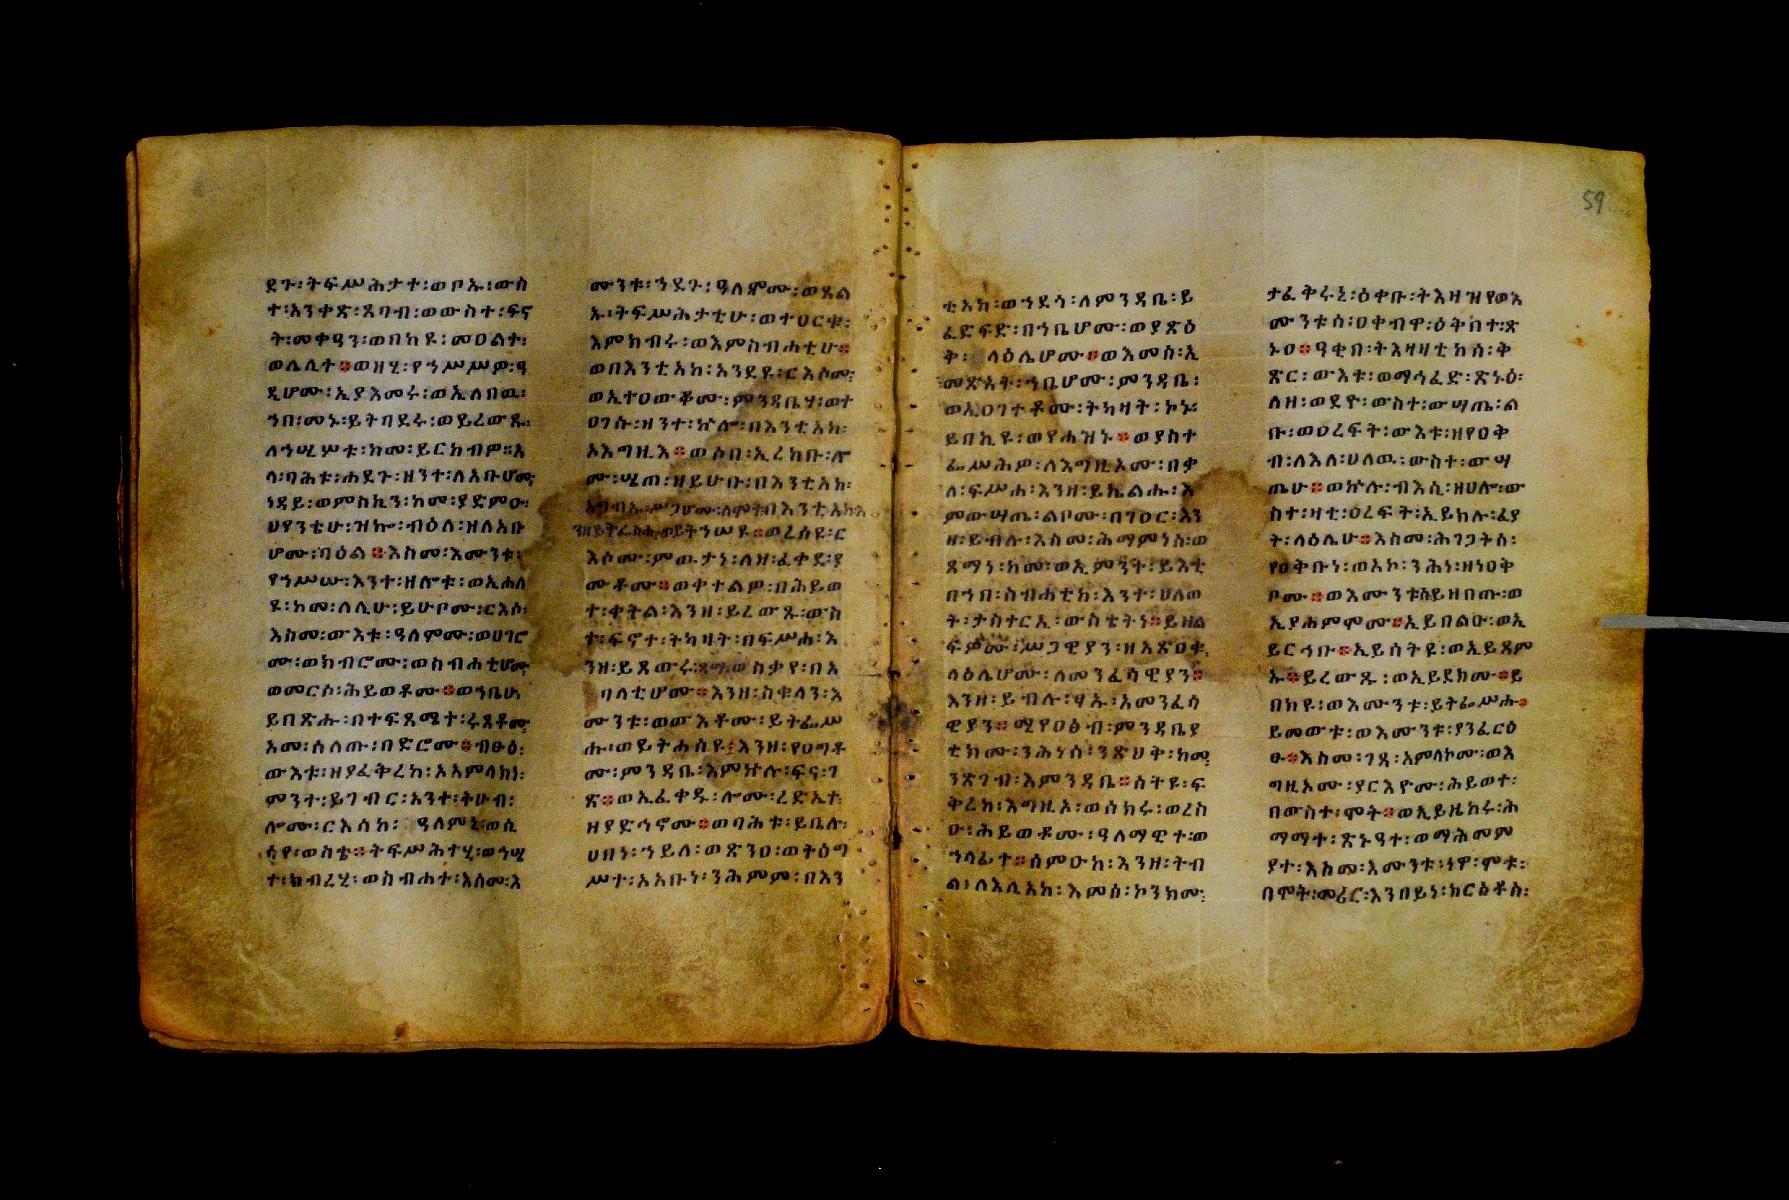 ደጉ፡ትፍሥሕታተ፡ወቦኡ፡ውስ
ተ፡አንቀጽ፡ጸባብ፡ወውስተ፡ፍኖ
ት፡መቀዓን፡ወበከዩ፡መዐልተ፡
ወሌሊተ፨ወዘሂ፡የኀሥሥዎ፡ዓ
ዲሆሙ፡ኢያእመሩ፡ወኢለበዉ፡
ኀበ፡መኑ፡ይትባደሩ፡ወይረውጹ፡
ለኀሢሦቱ፡ከመ፡ይርከብዎ።አ
ላ፡ባሕቱ፡ሐደጉ፡ዘንተ፡ለአቡሆሙ፡
ነዳይ፡ወምስኪን፡ከመ፡ያድምዑ፡
ሀየንቴሁ፡ዝኰ፡ብዕለ፡ዘለአቡ
ሆሙ፡ባዕል፨እስመ፡እሙንቱ፡
የኀሥሡ፡እንተ፡ዘሎቱ፡ወኢሐለ
ዩ፡ከመ፡ለሊሁ፡ይሁቦሙ፡ርእሶ፡
እስመ፡ውእቱ፡ዓለምሙ፡ወሀገሮ
ሙ፡ወክብሮሙ፡ወስብሐቲሆሙ፡
ወመርሶ፡ሕይወቶሙ፨ወኀቤሁ
ይበጽሑ፡በተፍጻሜተ፡ሩጸቶሙ፡
አመ፡ሰለጡ፡በድሮሙ፨ብፁዕ፡
ውእቱ፡ዘያፈቅረከ፡አአምላክነ፡
ምንተ፡ይገብር፡አንተ፡ትሁብ፡
ሎሙ፡ርእሰከ፡ ዓለምኒ፡ወሲ
ሳየ፡ወስቴ፨ትፍሥሕተሂ፡ወኀሤ
ተ፡ክብረሂ፡ወስብሐተ፡እስመ፡እ
ሙንቱ፡ኀደጉ፡ዓለሞሙ፡ወጸል
ኡ፡ትፍሥሕታቲሁ፡ወተዐርቁ፡
እምክብሩ፡ወእምስብሐቲሁ፨
ወበእንቲአከ፡አንደዩ፡ርእሶሙ፡
ወኢተዐውቆሙ፡ምንዳቤሃ፡ወተ
ዐገሱ፡ዘንተ፡ኵሎ፡በእንቲአከ፡
ኦእግዚእ፨ወሶበ፡ኢረከቡ፡ሎ
ሙ፡ሤጠ፡ዘይሁቡ፡በእንቲአከ፡
አግብኡ፡ሥጋሆሙ፡ለሞት፡በእንቲአከ፡እ
እሶሙ፡ምውታነ፡ለዘ፡ፈቀደ፡ያ
ሙቶሙ፨ወቀተልዎ፡በሕይወ
ተ፡ቀትል፡እንዘ፡ይረውጹ፡ውስ
ተ፡ፍኖተ፡ትካዛት፡በፍሥሐ፡እ
ባላቲሆሙ፨እንዘ፡ስቁላን፡እ
ሙንቱ፡ወውእቶሙ፡ይትፌሥ
ሑ፡ወይትሐሰዩ፡እንዘ፡የዐግቶ
ሙ፡ምንዳቤ፡እምኵሉ፡ፍና፡ገ
ጽ፨ወኢፈቀዱ፡ሎሙ፡ረድኤተ፡
ዘያድኅኖሙ፨ወባሕቱ፡ይቤሉ፡
ሀበነ፡ኀይለ፡ወጽንዐ፡ወትዕግ
ሥተ፡አአቡነ፡ንሕምም፡በእን
ቲአከ፡ወኀደሳ፡ለምንዳቤ፡ይ
ፈድፍድ፡በኀቤሆሙ፡ወያጽዕ
ቅ፡ ላዕሌሆሙ፨ወእመሰ፡ኢ
መጽአት፡ኀቤሆሙ፡ምንዳቤ፡
ወኢዐገተቶሙ፡ትካዛት፡ኮኑ፡
ይበኪዩ፡ወየሐዝኑ፨ወያስተ
ፌሥሕዎ፡ለእግዚኦሙ፡በቃ
ለ፡ፍሥሐ፡እንዘ፡ይኬልሑ፡እ
ምውሣጤ፡ልቦሙ፡በገዐር፡እን
ዘ፡ይብሉ፡እስመ፡ሕማምነሰ፡ወ
ጻማነ፡ከመ፡ወኢምንት፡ይእቲ
በኀበ፡ስብሐቲከ፡እንተ፡ሀለወ
ት፡ታስተርኢ፡ውስቴትነ፨ይዘል
ፍዎሙ፡ሥጋዊያን፡ዘአጽዐቁ፡
ላዕሌሆሙ፡ለመንፈሳዊያን፨
እንዘ፡ይብሉ፡ፃኡ፡አመንፈሳ
ዊያን፨ሚየዐፅብ፡ምንዳቤያ
ቲክሙ፡ንሕነሰ፡ንጽሀቅ፡ከመ፡
ንጽገብ፡እምንዳቤ፨ሰትዩ፡ፍ
ቅረከ፡እግዚኦ፡ወሰክሩ፡ወረስ
ዑ፡ሕይወቶሙ፡ዓለማዊተ፡ወ
ኀላፊተ፨ሰምዑከ፡እንዘ፡ትብ
ል፡ለእሊአከ፡እመሰ፡ኮንክሙ፡
ታፈቅሩኒ፡ዕቀቡ፡ትእዛዝየወእ
ሙንቱሰ፡ዐቀብዋ፡ዕቅበተ፡ጽ
ኑዐ፨ዓቂበ፡ትእዛዛቲከሰ፡ቅ
ጽር፡ውእቱ፡ወማኅፈድ፡ጽኑዕ፡
ለዘ፡ወደዮ፡ውስተ፡ውሣጤ፡ል
ቡ፡ወዐረፍት፡ውእቱ፡ዘየዐቅ
ብ፡ለእለ፡ሀለዉ፡ውስተ፡ውሣ
ጤሁ፨ወኵሉ፡ብእሲ፡ዘሀሎ፡ው
ስተ፡ዛቲ፡ዕረፍት፡ኢይክሉ፡ፈያ
ት፡ላዕሌሁ፨እስመ፡ሕገጋትሰ፡
የዐቅቡነ፡ወአኮ፡ንሕነ፡ዘነዐቅ
ቦሙ፨ወእሙንቱሰ፡ይዘበጡ፡ወ
ኢያሐምሞሙ፨ኢይበልዑ፡ወኢ
ይርኅቡ፨ኢይሰትዩ፡ወኢይጸም
ኡ፨ይረውጹ፡ወኢይደክሙ፨ይ
በክዩ፡ወእሙንቱ፡ይትፌሥሑ፨
ይመውቱ፡ወእሙንቱ፡ያንፈርዕ
ፁ፨እስመ፡ገጸ፡አምላኮሙ፡ወእ
ግዚኦሙ፡ያርእዮሙ፡ሕይወተ፡
በውስተ፡ሞት፨ወኢይዜከሩ፡ሕ
ማማተ፡ጽኑዓተ፡ወማሕመም
ያተ፡እስመ፡እሙንቱ፡ነዋ፡ሞቱ፡
በሞት፡መሪር፡እንበይነ፡ክርስቶስ፡
59